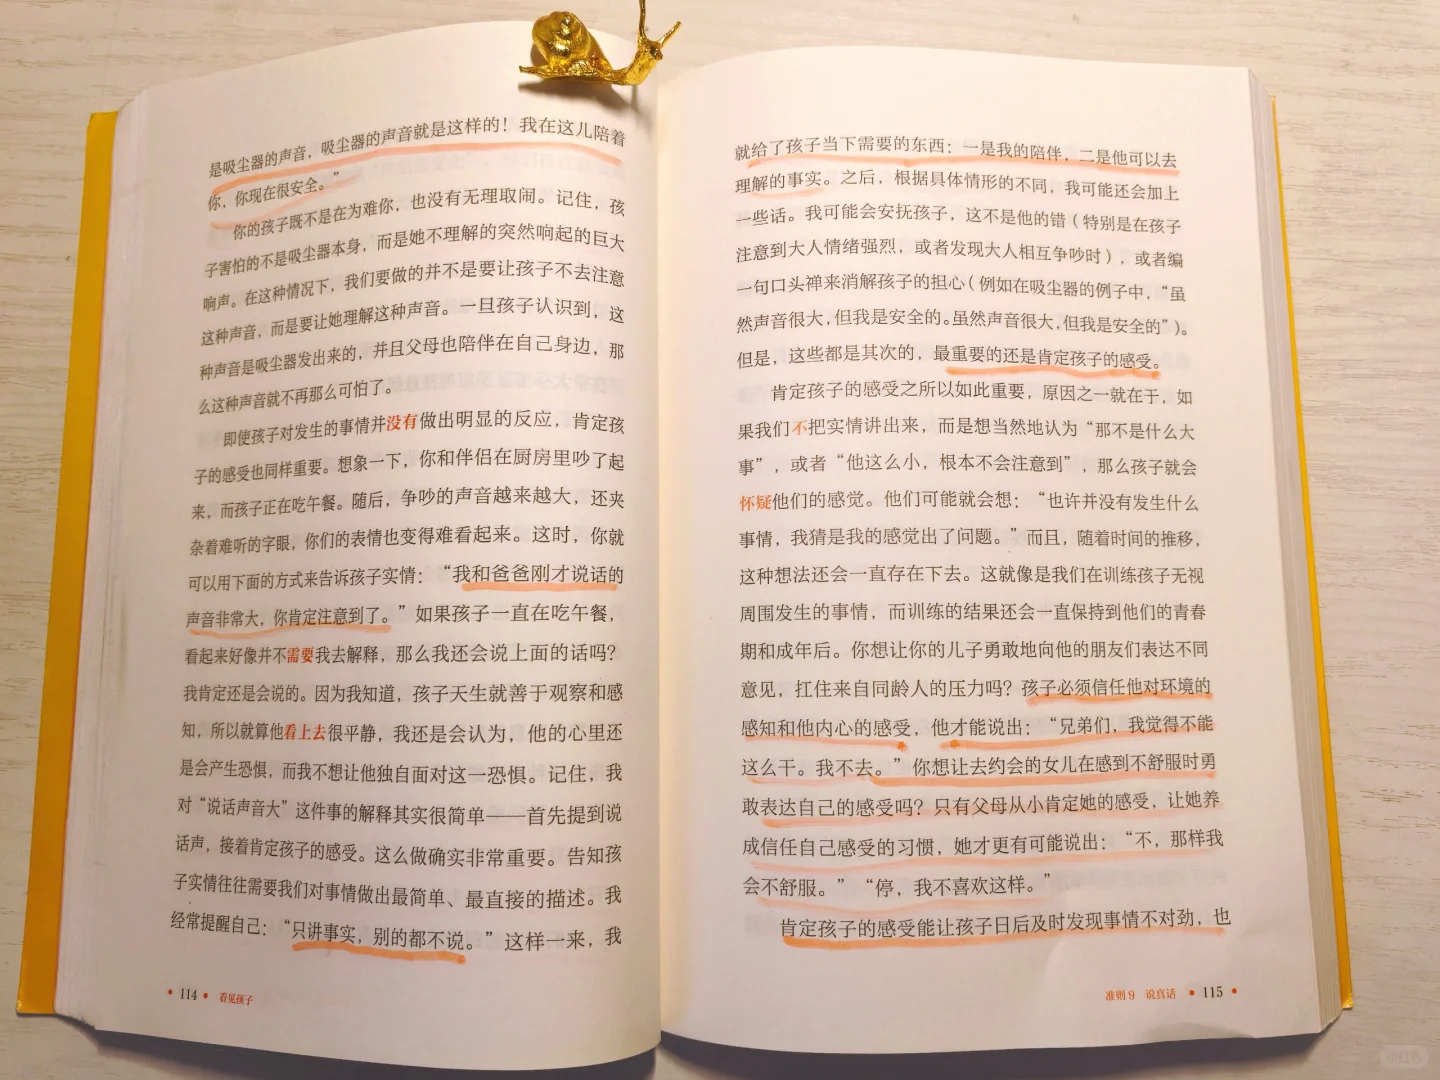 是吸尘器的声音，吸尘器的声音就是这样的！我在这儿陪着
你，你现在很安全。”
你的孩子既不是在为难你，也没有无理取闹。记住，孩
子害怕的不是吸尘器本身，而是她不理解的突然响起的巨大
响声。在这种情况下，我们要做的并不是要让孩子不去注意
这种声音，而是要让她理解这种声音。一旦孩子认识到，这
种声音是吸尘器发出来的，并且父母也陪伴在自己身边，那
么这种声音就不再那么可怕了。
即使孩子对发生的事情并没有做出明显的反应，肯定孩
子的感受也同样重要。想象一下，你和伴侣在厨房里吵了起
来，而孩子正在吃午餐。随后，争吵的声音越来越大，还夹
杂着难听的字眼，你们的表情也变得难看起来。这时，你就
可以用下面的方式来告诉孩子实情：“我和爸爸刚才说话的
声音非常大，你肯定注意到了。”如果孩子一直在吃午餐，
看起来好像并不需要我去解释，那么我还会说上面的话吗？
我肯定还是会说的。因为我知道，孩子天生就善于观察和感
知，所以就算他看上去很平静，我还是会认为，他的心里还
是会产生恐惧，而我不想让他独自面对这一恐惧。记住，我
对“说话声音大”这件事的解释其实很简单——首先提到说
话声，接着肯定孩子的感受。这么做确实非常重要。告知孩
子实情往往需要我们对事情做出最简单、最直接的描述。我
经常提醒自己：“只讲事实，别的都不说。”这样一来，我
• 114 • 看见孩子
就给了孩子当下需要的东西：一是我的陪伴，二是他可以去
理解的事实。之后，根据具体情形的不同，我可能还会加上
一些话。我可能会安抚孩子，这不是他的错（特别是在孩子
注意到大人情绪强烈，或者发现大人相互争吵时），或者编
一句口头禅来消解孩子的担心（例如在吸尘器的例子中，“虽
然声音很大，但我是安全的。虽然声音很大，但我是安全的”）。
但是，这些都是其次的，最重要的还是肯定孩子的感受。
肯定孩子的感受之所以如此重要，原因之一就在于，如
果我们不把实情讲出来，而是想当然地认为“那不是什么大
事”，或者“他这么小，根本不会注意到”，那么孩子就会
怀疑他们的感觉。他们可能就会想：“也许并没有发生什么
事情，我猜是我的感觉出了问题。”而且，随着时间的推移，
这种想法还会一直存在下去。这就像是我们在训练孩子无视
周围发生的事情，而训练的结果还会一直保持到他们的青春
期和成年后。你想让你的儿子勇敢地向他的朋友们表达不同
意见，扛住来自同龄人的压力吗？孩子必须信任他对环境的
感知和他内心的感受，他才能说出：“兄弟们，我觉得不能
这么干。我不去。”你想让去约会的女儿在感到不舒服时勇
敢表达自己的感受吗？只有父母从小肯定她的感受，让她养
成信任自己感受的习惯，她才更有可能说出：“不，那样我
会不舒服。”“停，我不喜欢这样。”
肯定孩子的感受能让孩子日后及时发现事情不对劲，也
准则 9 说真话 • 115 •
小红书